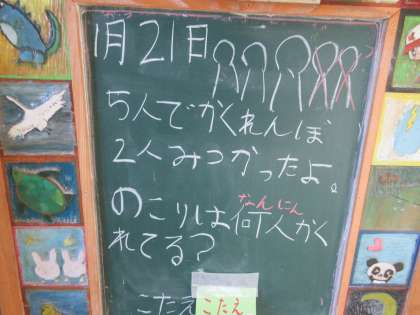 1月21日
5人でかくれんぼ
2人みつかったよ。
のこりは何人かく
なんにん
れてる?
こたえ
こたえ